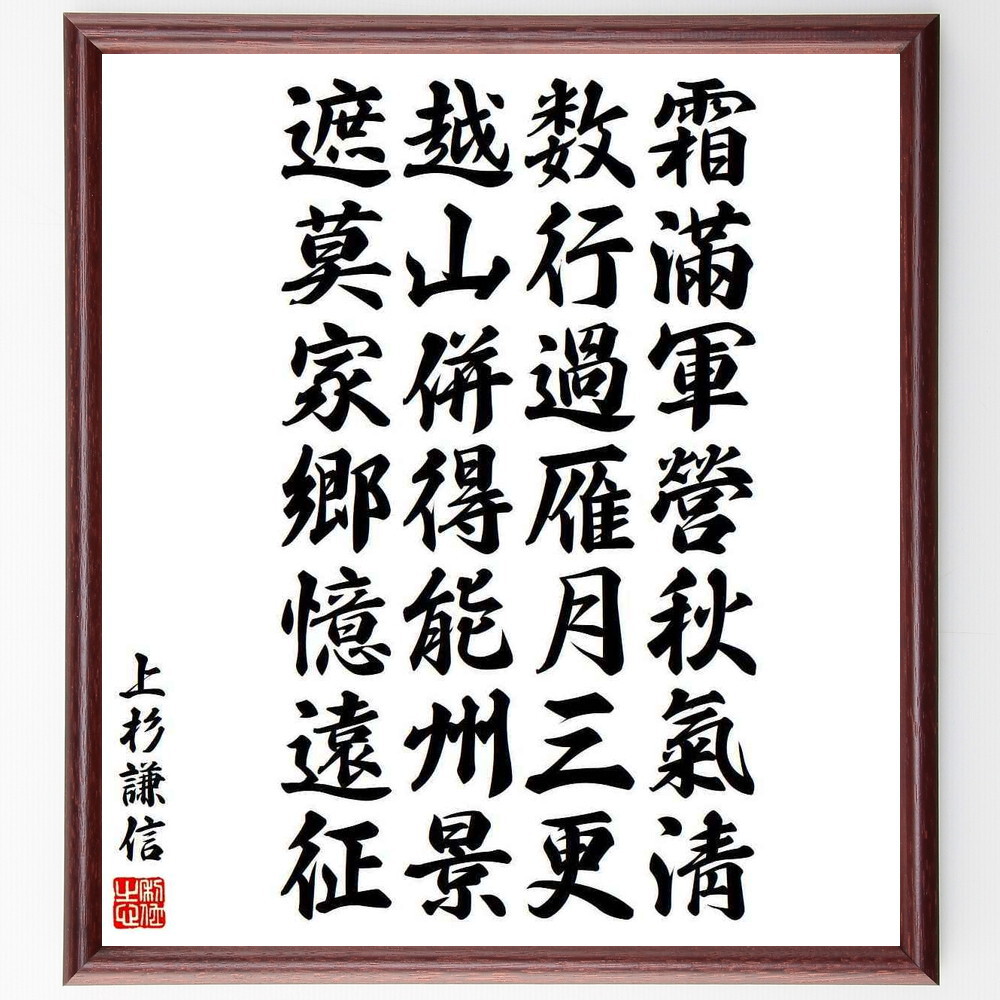 霜滿軍營秋氣清
数行過雁月三更
越山併得能州景
遮莫家郷憶遠征
上杉謙信